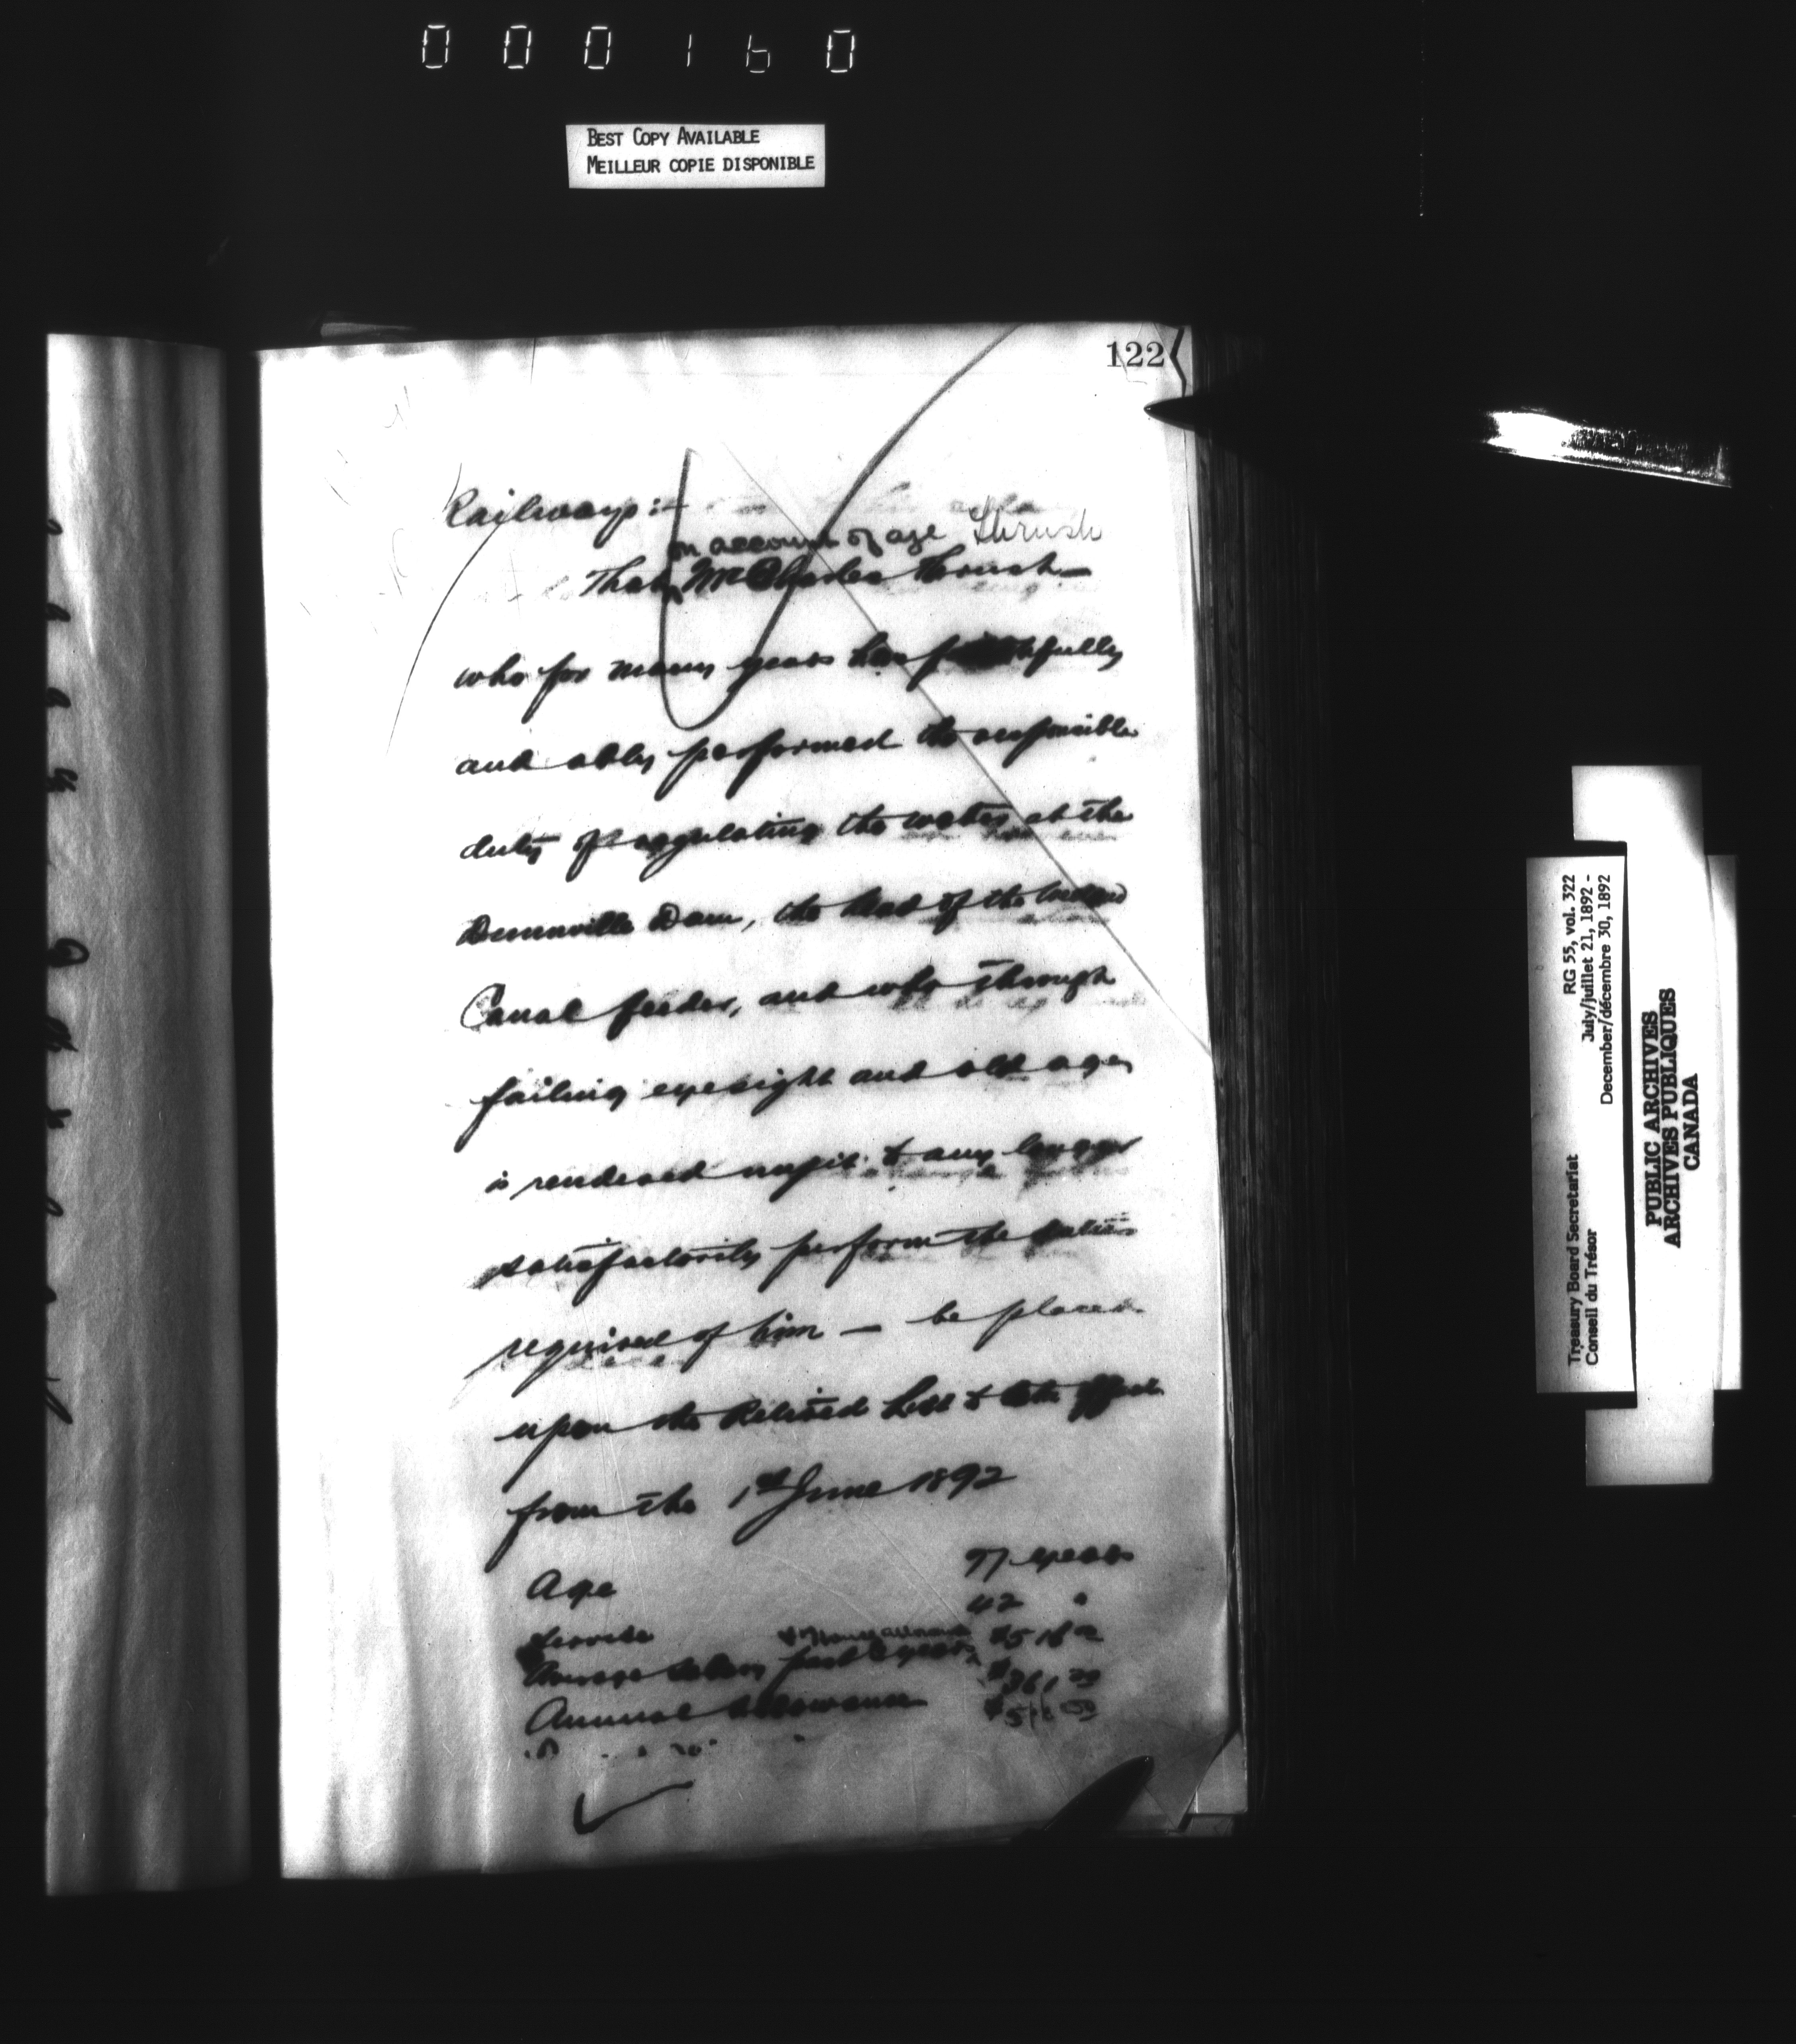 000160
BEST COPY AVAILABLE
MEILLEUR COPIE DISPONIBLE
122
Railways :-
on account of age Thrush
That Mr Charles Thrush -
who for many years has faithfully
and ably performed the responsible
duty of regulating the water at the
Dunnville Dam, the head of the
Canal feeder, and who through
failing eyesight and old age,
is rendered unfit to any longer
satisfactorily perform the duties
required of him - be placed
upon the Retired List to take effect
from the 1st June 1892
Age 77 years
Service 42 "
Average salary past 3 years $518
Annual Allowance $361
$518
RG 55, vol. 322
July/juillet 21, 1892 -
December/décembre 30, 1892
Treasury Board Secretariat
Conseil du Trésor
PUBLIC ARCHIVES
ARCHIVES PUBLIQUES
CANADA